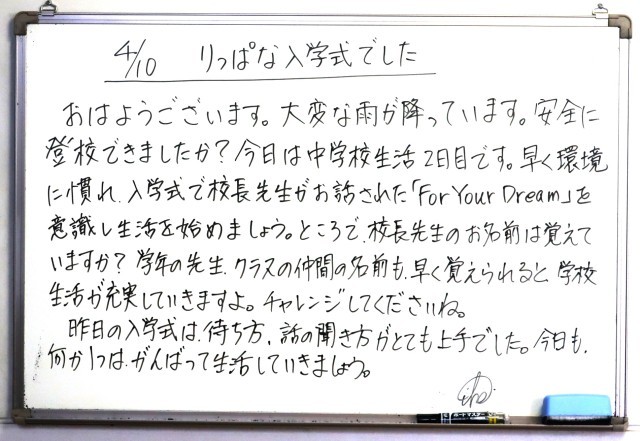 4/10 りっぱな入学式でした
おはようございます。大変な雨が降っています。安全に
登校できましたか?今日は中学校生活2日目です。早く環境
に慣れ、入学式で校長先生がお話された「For Your Dream」を
意識し生活を始めましょう。ところで、校長先生のお名前は覚えて
いますか?学年の先生、クラスの仲間の名前も、早く覚えられると、学校
生活が充実していきますよ。チャレンジしてくださいね。
昨日の入学式は、待ち方、話の聞き方がとても上手でした。今日も、
何か1つは、がんばって生活していきましょう。